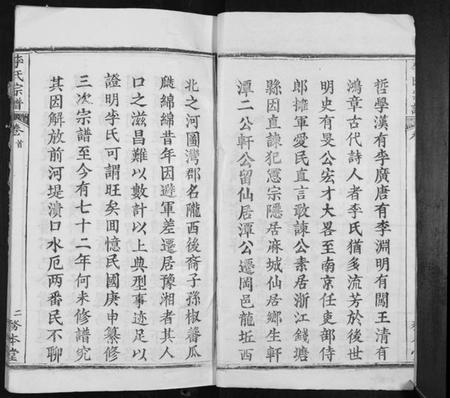 哲學漢有李廣唐有李淵明有闖王清有
鴻章古代詩人者李氏猶多流芳於後世
明史有旻公宏才大畧至南京任吏部侍
郎擁軍愛民直言敢諫公素居浙江錢塘
縣因直諫犯憲宗隱居麻城仙居鄉生軒
潭二公軒公留仙居潭公遷岡邑龍坵西
北之河圖灣郡名隴西後裔子孫椒蕃瓜
瓞綿綿昔年因避軍差遷居豫湘者其人
口之滋昌難以數計以上典型事迹足以
證明李氏可謂旺矣囬憶民國庚申纂修
三次宗譜至今有七十二年何未修譜究
其因解放前河堤潰口水厄两番民不聊
李氏宗譜
卷首
二
務本堂